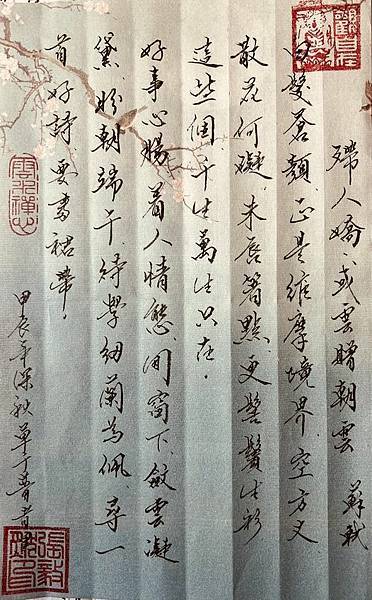 殢人嬌·或雲贈朝雲 蘇軾
白髮蒼顏正是維摩境界空方丈
散花何礙朱唇箸點更髻鬟生彩
這些個千生萬生只在.
好事心腸着人情態閒窗下斂雲凝
黛明朝端午待學紉蘭為佩尋一
首好詩要書裙帶.
甲辰年深秋草
觀自在
雲水禪心